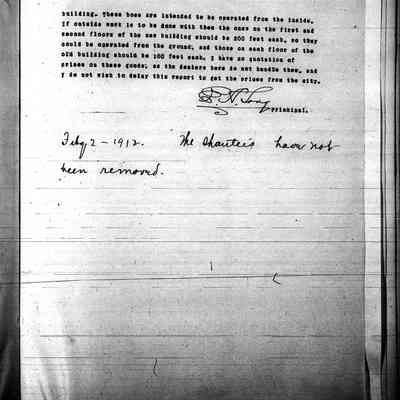 building. These hose are intended to be operated from the inside.
If outside work is to be done with them the ones on the first and
second floors of the new building should be 200 feet each, so they
could be operated from the ground, and those on each floor of the
old building should be 100 feet each. I have no quotation of
prices on these goods; as the dealers here do not handle them, and
I do not wish to delay this report to get the prices from the city.
Principal.
Feby 2 - 1912. The shanties have not
been removed.